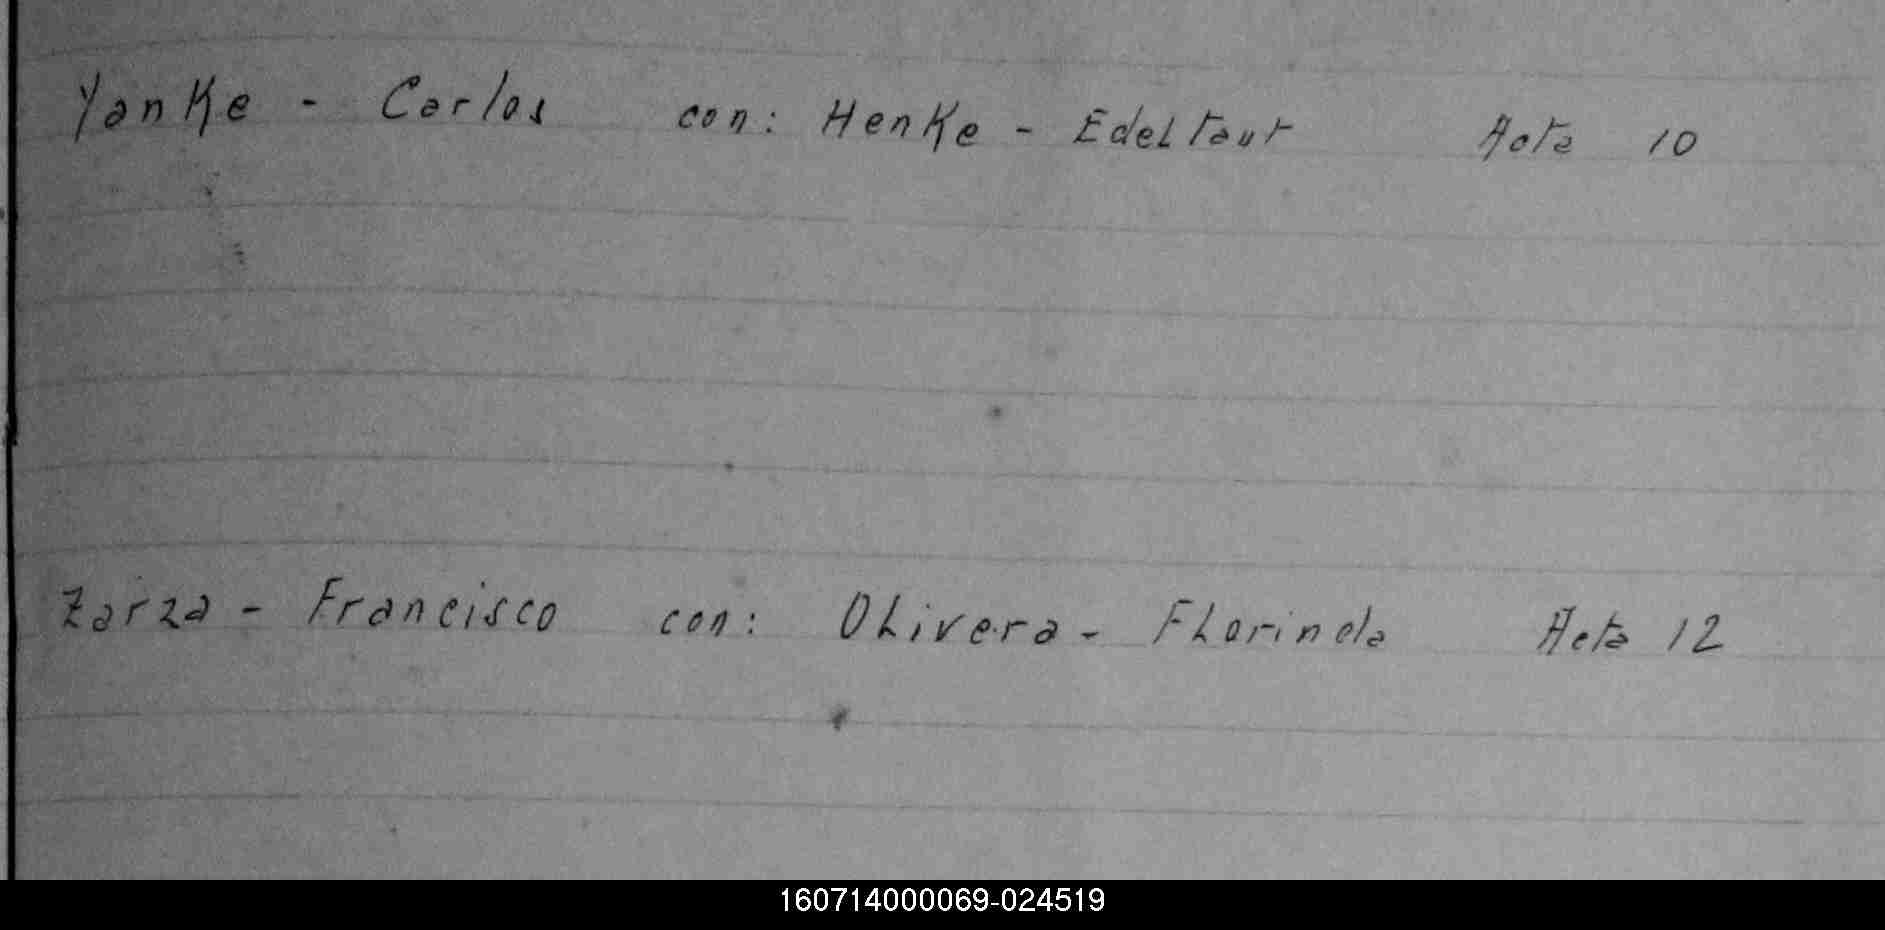 Yanke - Carlos con: Henke - Edeltaut Acta 10
Zarza - Francisco con: Olivera - Florinda Acta 12
160714000069-024519